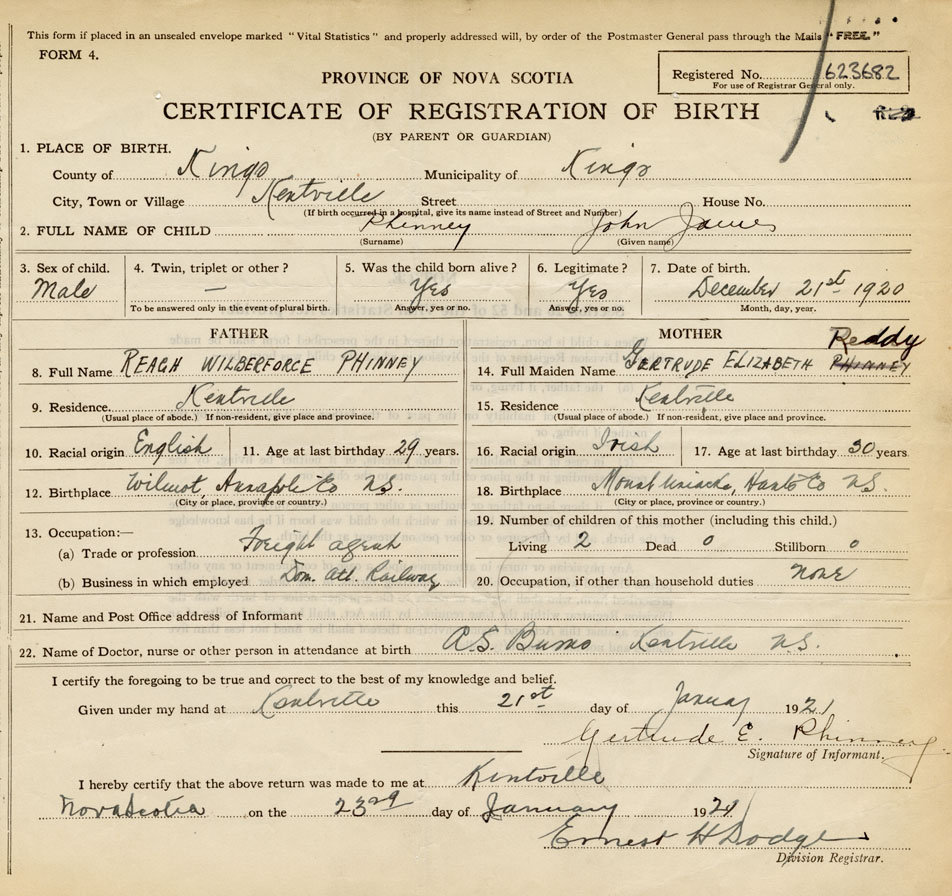 This form if placed in an unsealed envelope marked "Vital Statistics" and properly addressed will, by order of the Postmaster General pass through the Mails "FREE."
FORM 4.
PROVINCE OF NOVA SCOTIA
Registered No. 623682
For use of Registrar General only.
CERTIFICATE OF REGISTRATION OF BIRTH
(BY PARENT OR GUARDIAN)
1. PLACE OF BIRTH.
County of Kings Municipality of Kings
City, Town or Village Kentville Street House No.
(If birth occurred in a hospital, give its name instead of Street and Number)
2. FULL NAME OF CHILD Phinney John James
(Surname) (Given name)
3. Sex of child. 4. Twin, triplet or other? 5. Was the child born alive? 6. Legitimate? 7. Date of birth.
Male — Yes Yes December 21st 1920
To be answered only in the event of plural birth. Answer, yes or no. Answer, yes or no. Month, day, year.
FATHER MOTHER Reddy
8. Full Name REAGH WILBERFORCE PHINNEY 14. Full Maiden Name GERTRUDE ELIZABETH PHINNEY
9. Residence Kentville 15. Residence Kentville
(Usual place of abode.) If non-resident, give place and province. (Usual place of abode.) If non-resident, give place and province.
10. Racial origin English 11. Age at last birthday 29 years. 16. Racial origin Irish 17. Age at last birthday 30 years
12. Birthplace Wilmot, Annapolis Co N.S. 18. Birthplace Mount Uniacke, Hants Co N S
(City or place, province or country.) (City or place, province or country.)
13. Occupation:— 19. Number of children of this mother (including this child.)
(a) Trade or profession Freight agent Living 2 Dead 0 Stillborn 0
(b) Business in which employed Dom. Atl. Railway 20. Occupation, if other than household duties none
21. Name and Post Office address of Informant
22. Name of Doctor, nurse or other person in attendance at birth A.S. Burns Kentville N.S.
I certify the foregoing to be true and correct to the best of my knowledge and belief.
Given under my hand at Kentville this 21st day of January 1921
Gertrude E. Phinney
Signature of Informant.
I hereby certify that the above return was made to me at Kentville
Nova Scotia on the 23rd day of January 1921
Ernest H Dodge
Division Registrar.